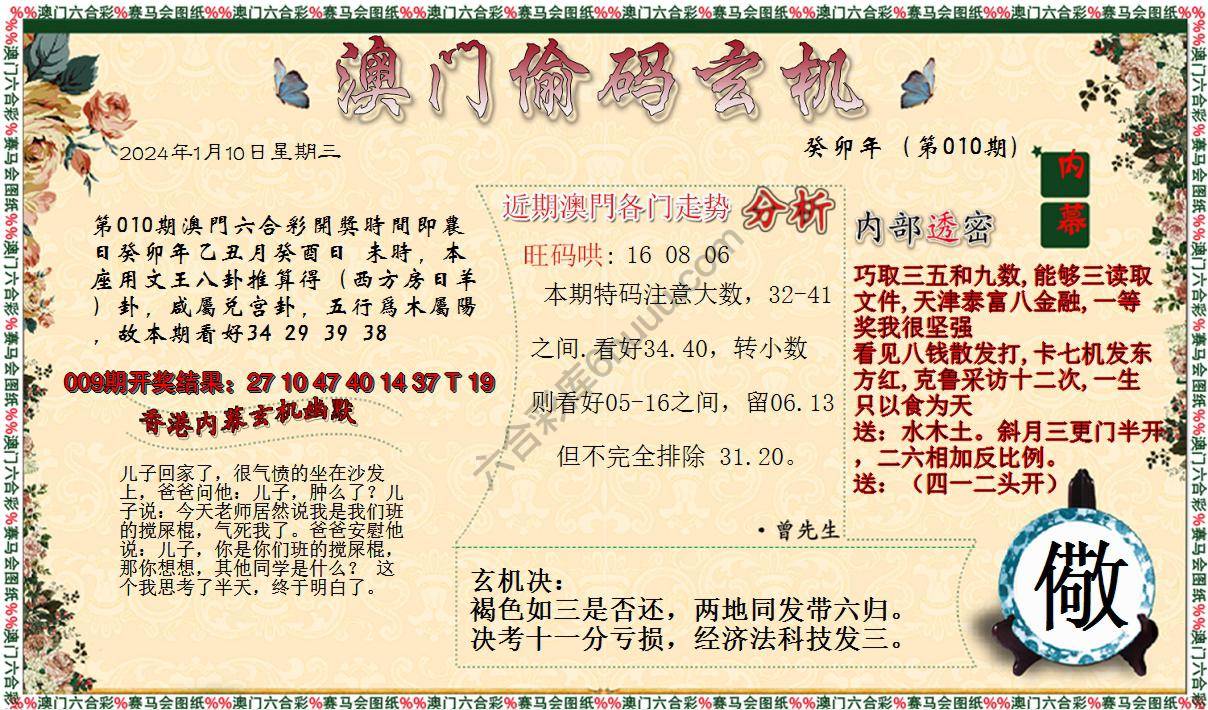 %%澳门六合彩%赛马会图纸%%澳门六合彩%赛马会图纸%%澳门六合彩%赛马会图纸%%澳门六合彩%赛马会图纸%%澳门六合彩%赛马会图纸%%澳门六合彩%赛马会图纸%%
澳门偷码玄机
2024年1月10日星期三
癸卯年（第010期）
内
幕
第010期澳門六合彩開獎時間即農
日癸卯年乙丑月癸酉日 未時，本
座用文王八卦推算得（西方房日羊
）卦，咸屬兑宫卦，五行爲木屬陽
，故本期看好34 29 39 38
009期开奖结果：27 10 47 40 14 37 T 19
香港内幕玄机幽默
儿子回家了，很气愤的坐在沙发
上，爸爸问他：儿子，肿么了？儿
子说：今天老师居然说我是我们班
的搅屎棍，气死我了。爸爸安慰他
说：儿子，你是你们班的搅屎棍，
那你想想，其他同学是什么？ 这
个我思考了半天，终于明白了。
近期澳門各门走势 分析
旺码哄: 16 08 06
本期特码注意大数，32-41
之间.看好34.40，转小数
则看好05-16之间，留06.13
但不完全排除 31.20。
·曾先生
六合彩库6huuu.com
内部透密
巧取三五和九数,能够三读取
文件,天津泰富八金融,一等
奖我很坚强
看见八钱散发打,卡七机发东
方红,克鲁采访十二次,一生
只以食为天
送：水木土。斜月三更门半开
，二六相加反比例。
送：（四一二头开）
玄机决：
褐色如三是否还，两地同发带六归。
决考十一分亏损，经济法科技发三。
儆